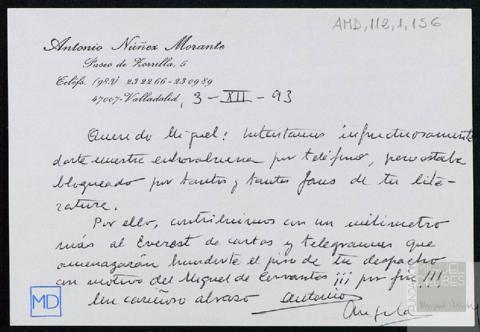 AMD, 112, 1, 156
Antonio Núñez Morante
Paseo de Zorrilla, 6
Teléfs. (983) 23 22 66 - 23 09 89
47007-Valladolid, 3-XII-93
Querido Miguel: Intentamos infructuosamente
darte nuestra enhorabuena por teléfono, pero estaba
bloqueado por tantos y tantos fans de tu lite-
ratura.
Por ello, contribuimos con un milímetro
más al Everest de cartas y telegramas que
amenazarán hundirte el piso de tu despacho
con motivo del Miguel de Cervantes ¡¡¡ por fin !!!
Un cariñoso abrazo Antonio
Angela
MD